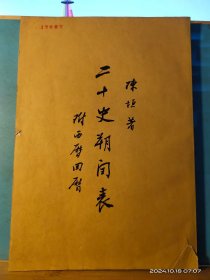 陳垣著
二十史朔閏表
附西曆回曆
2024.10.18 07:07